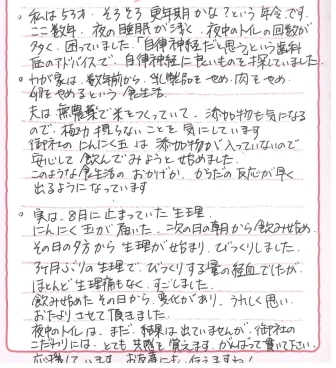 。私は53才、そろそろ更年期かな？という年令です。
ここ数年、夜の睡眠が浅く、夜中のトイレの回数が
多く、困っていました。「自律神経だと思う」という歯科
医のアドバイスで、自律神経に良いものを探していました。
。わが家は、数年前から、乳製品をやめ、肉をやめ、
卵をやめるという食生活。
夫は無農薬で米をつくっていて、添加物も気になる
ので、極力摂らないことを気にしています
御社のにんにく玉は添加物が入っていないので
安心して飲んでみようと始めました。
このような食生活のおかげか、からだの反応が早く
出るようになっています
。実は、8月に止まっていた生理。
にんにく玉が届いた、次の日の朝から飲み始め、
その日の夕方から生理が始まり、びっくりしました。
3ヶ月ぶりの生理で、びっくりする量の経血でしたが、
ほとんど生理痛もなく、すごしました。
飲み始めたその日から、変化があり、うれしく思い、
おたよりさせて頂きました。
夜中のトイレは、まだ、結果は出ていませんが、御社の
こだわりには、とても共感を覚えます。がんばって貰いて下さい。
応援しています。お友達にも、伝えますね！